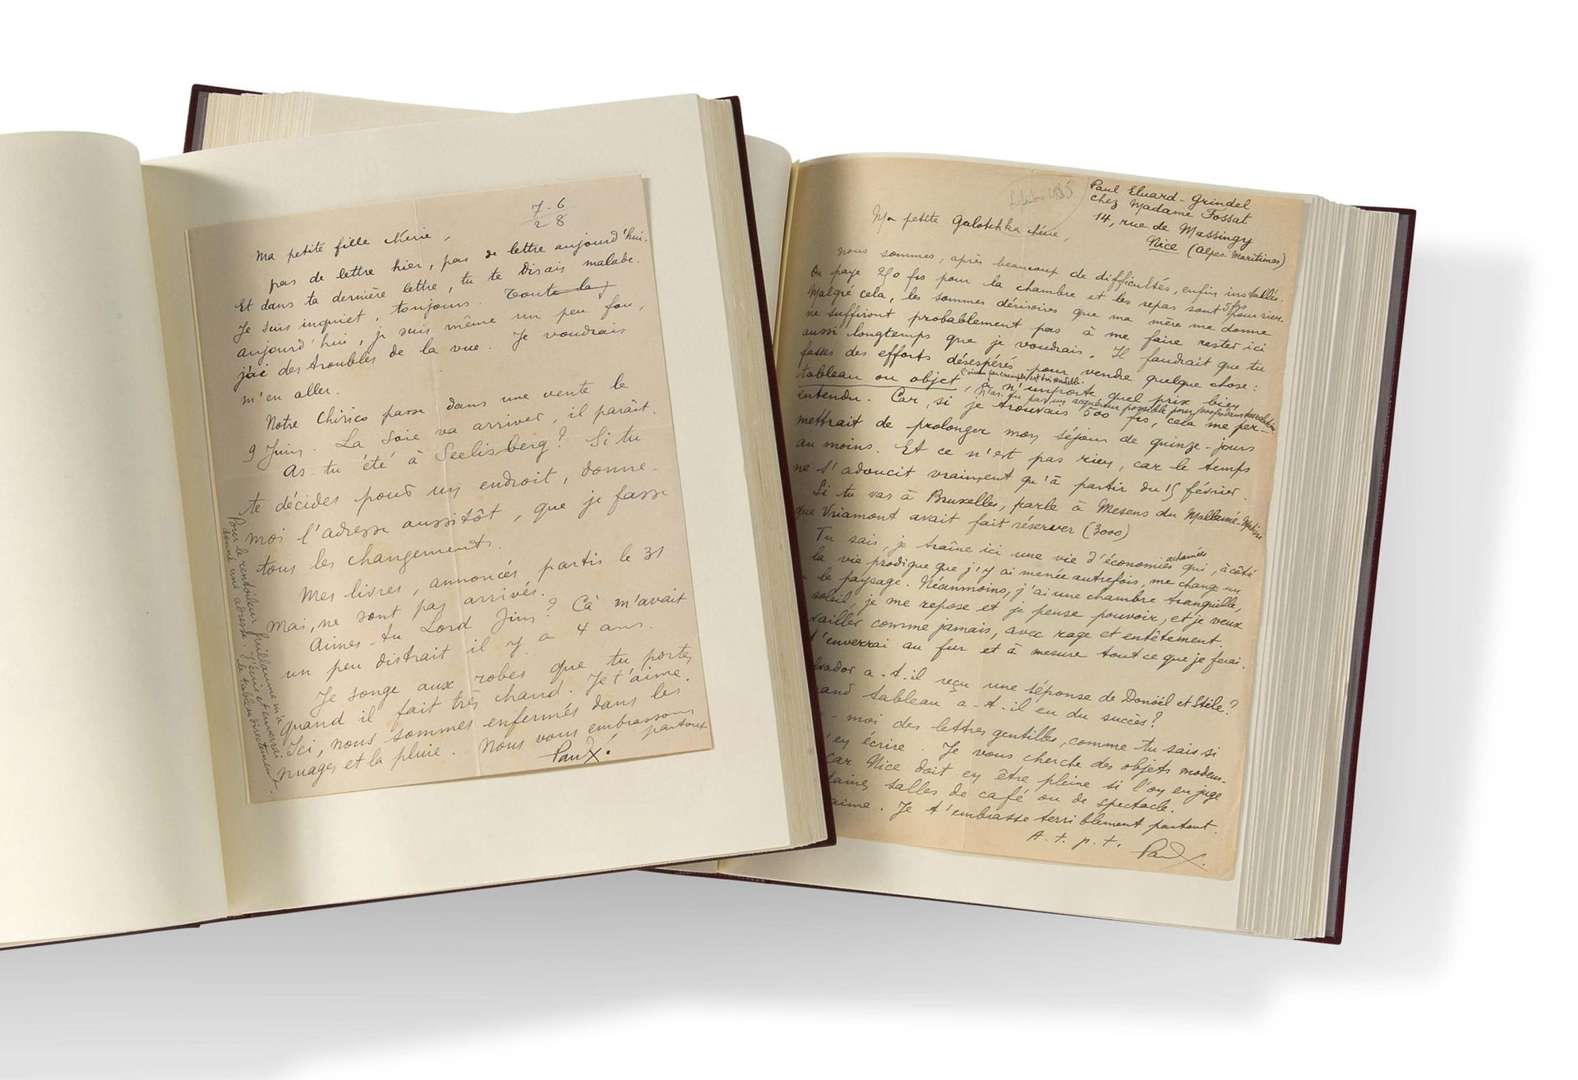 7-6
28
Ma petite fille chérie,
pas de lettre hier, pas de lettre aujourd'hui.
Et dans ta dernière lettre, tu te disais malade.
Je suis inquiet, toujours. Toute la
aujourd'hui, je suis même un peu fou,
j'ai des troubles de la vue. Je voudrais
m'en aller.
Notre Chirico passe dans une vente le
9 Juin. La Soie va arriver, il paraît.
As-tu été à Seelisberg? Si tu
te décides pour un endroit, donne-
moi l'adresse aussitôt, que je fasse
tous les changements.
Mes livres, annoncés partis le 31
Mai, ne sont pas arrivés.
Aimes-tu Lord Jim? Cà m'avait
un peu distrait il y a 4 ans.
Je songe aux robes que tu portes
quand il fait très chaud. Je t'aime.
Ici, nous sommes enfermés dans les
nuages et la pluie. Nous vous embrassons partout
Paul.
Pour le rentoileur, Guillaume m'a
donné une adresse.
Paul Eluard-Grindel
chez Madame Fossat
14, rue de Massingy
Nice (Alpes-Maritimes)
Ma petite Galotchka chérie,
nous sommes, après beaucoup de difficultés, enfin installés.
On paye 240 frs pour la chambre et les repas sont pour rien.
Malgré cela, les sommes dérisoires que ma mère me donne
ne suffiront probablement pas à me faire rester ici
aussi longtemps que je voudrais. Il faudrait que tu
fasses des efforts désespérés pour vendre quelque chose:
tableau ou objet, à n'importe quel prix bien
entendu. Car, si je trouvais 500 frs, cela me per-
mettrait de prolonger mon séjour de quinze jours
au moins. Et ce n'est pas rien, car le temps
ne s'adoucit vraiment qu'à partir du 15 février.
Si tu vas à Bruxelles, parle à Mesens du Mallarmé-Matisse
que Vriamont avait fait réserver (3000)
Tu sais, je traîne ici une vie d'économies acharnée qui, à côté
la vie prodigue que j'y ai menée autrefois, me change un
le paysage. Néanmoins, j'ai une chambre tranquille,
soleil, je me repose et je pense pouvoir, et je veux
vailler comme jamais, avec rage et entêtement.
t'enverrai au fur et à mesure tout ce que je ferai.
lvador a-t-il reçu une réponse de Donöel et Stèle?
and tableau a-t-il eu du succès?
moi des lettres gentilles, comme tu sais si
en écrire. Je vous cherche des objets modern-
car Nice doit en être pleine si l'on en juge
taines salles de café ou de spectacle.
aime. Je t'embrasse terriblement partout.
A. t. p. t. Paul.